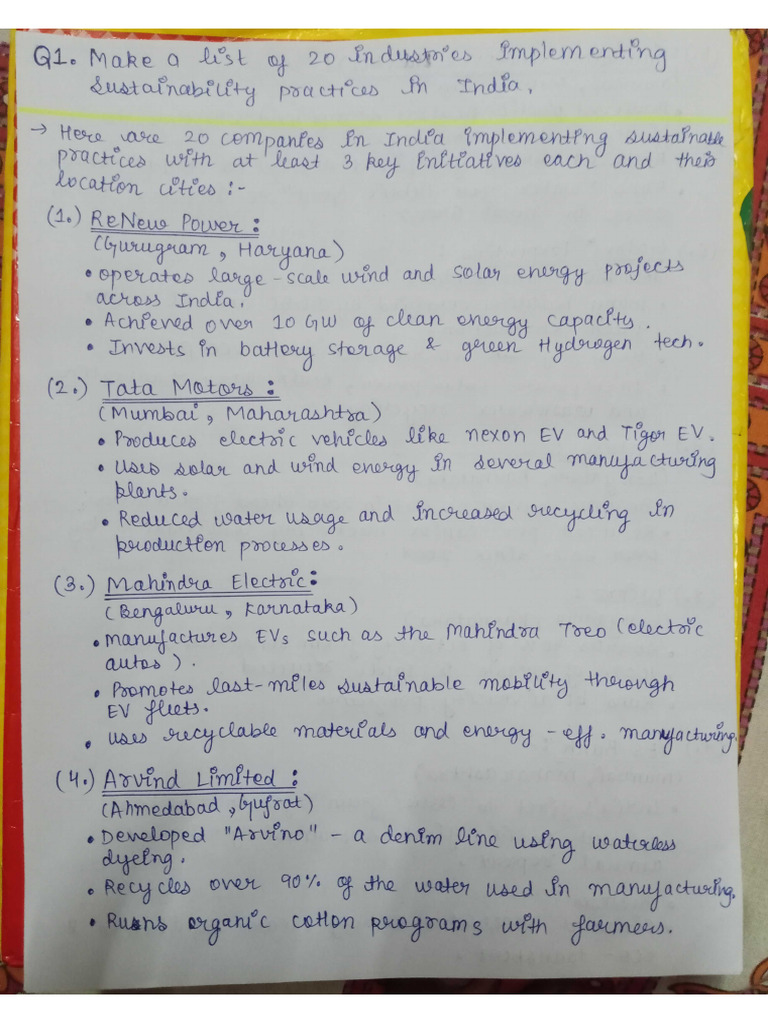 Q1. Make a list of 20 industries implementing
sustainability practices in India.
→ Here are 20 companies in India implementing sustainable
practices with at least 3 key initiatives each and their
location cities :-
(1.) ReNew Power :
(Gurugram, Haryana)
• operates large-scale wind and solar energy projects
across India.
• Achieved over 10 GW of clean energy capacity.
• Invests in battery storage & green Hydrogen tech.
(2.) Tata Motors :
(Mumbai, Maharashtra)
• Produces electric vehicles like nexon EV and Tigor EV.
• uses solar and wind energy in several manufacturing
plants.
• Reduced water usage and increased recycling in
production processes.
(3.) Mahindra Electric:
(Bengaluru, Karnataka)
• manufactures EVs such as the Mahindra Treo (electric
autos).
• Promotes last-miles sustainable mobility through
EV fleets.
• uses recyclable materials and energy-eff. manufacturing.
(4.) Arvind Limited :
(Ahmedabad, Gujrat)
• Developed "Arvino" - a denim line using waterless
dyeing.
• Recycles over 90% of the water used in manufacturing.
• Runs organic cotton programs with farmers.